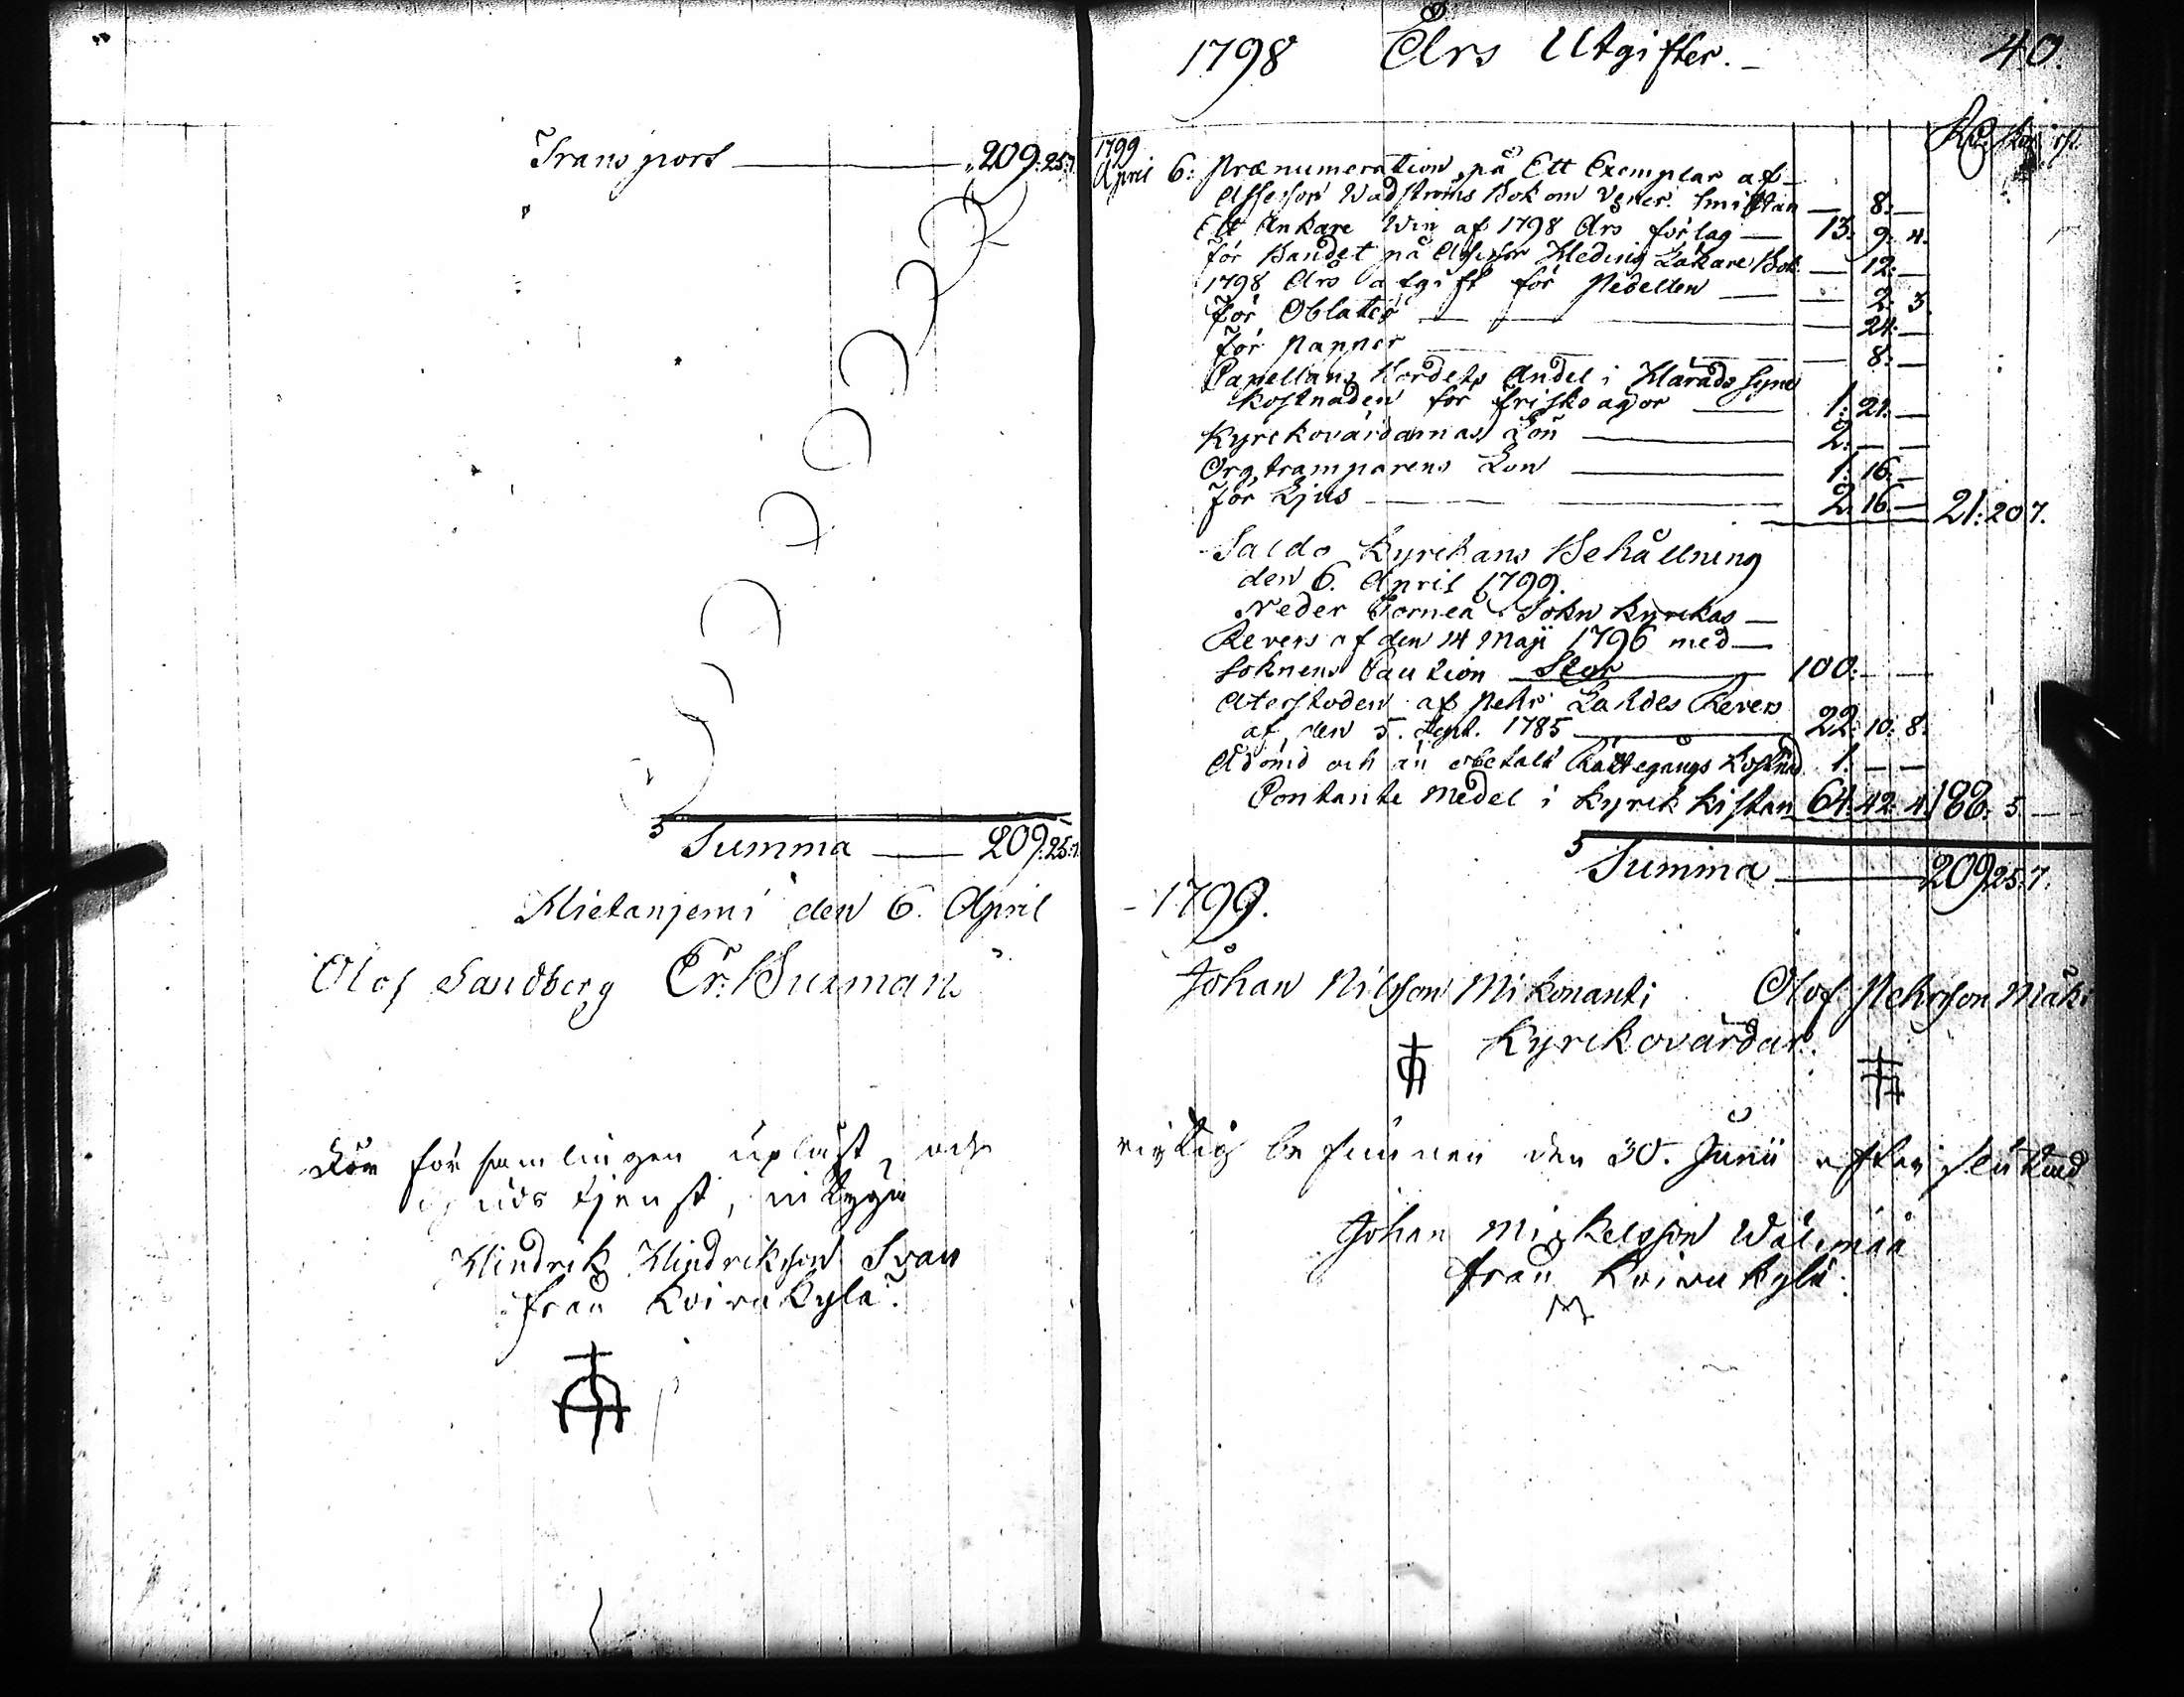 Transport — 209:25:7.
Summa — 209:25:7.
Hietaniemi den 6. April
Olof Sandberg Er: Burman
för församlingen upläst, och
guds tjenst, intyga
Hindrik Hindriksson Svan
från Koivukylä.
1798 Års Utgifter. 40.
Rd. sk. rst.
1799
April 6: Prænumeration på Ett Exemplar af
Assessor Wadströms Bok om Vener. Smittan — 8: —
Ett Ankare Win af 1798 Års förlag — 13: 9: 4.
för Bandet på Assessor Hedins Läkare Bok — 12: —
1798 Års afgift för Pedellen — 2: 3
för Oblater — 24: —
för Papper — 8: —
Capellans Bordets Andel i Härads Syne
kostnaden för frisko ägor — 1: 21. —
Kyrckovärdarnas Lön — 2: — —
Orgtramparens Lön — 1: 16. —
för Ljus — 2. 16. — 21: 20 7.
Saldo Kyrckans Behållning
den 6. April 1799.
Neder Torneå Sokn Kyrckas —
Revers af den 14 Maji 1796 med —
Soknens Caution Stor — 100: — —
Återstoden af Pehr Lahdes Revers
af den 5. Sept. 1785 — 22: 10: 8.
Ådömd och än obetalt Rättegångs Kostnad 1. — —
Contante Medel i Kyrck Kistan 64: 42: 4. 188: 5. —
Summa — 209 25. 7.
1799.
Johan Nilsson Mikonanti Olof Pehrsson Mäki
Kyrckovärdar.
rigtig befunnen den 30. Junii efter slutad
Johan Mickelsson Wälimaa
från Koivukylä.